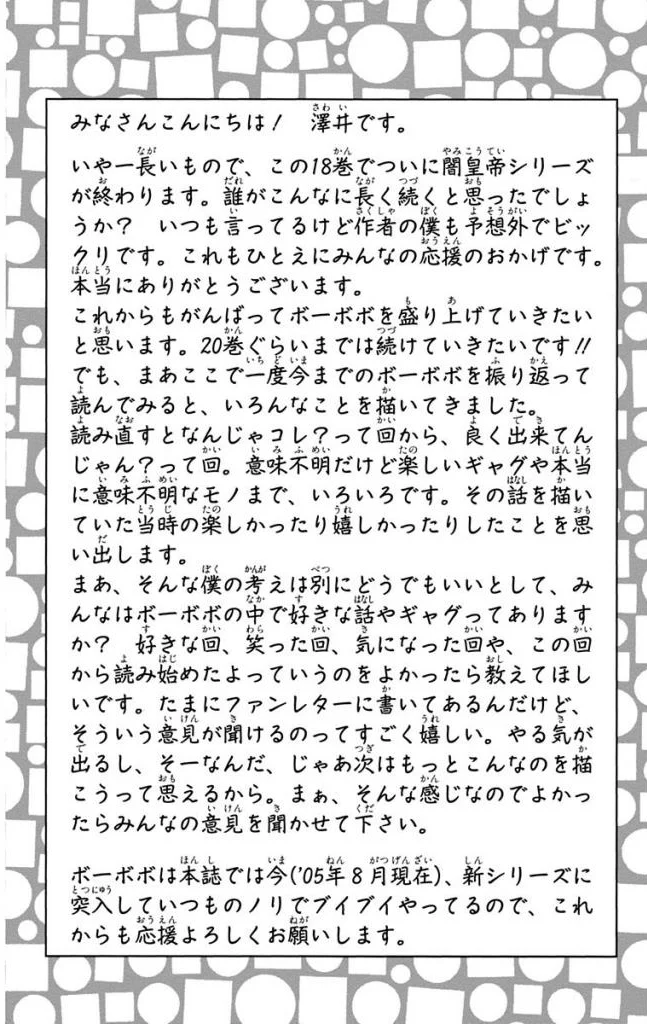 みなさんこんにちは! 澤井です。
いやー長いもので、この18巻でついに闇皇帝シリーズ
が終わります。誰がこんなに長く続くと思ったでしょ
うか? いつも言ってるけど作者の僕も予想外でビッ
クリです。これもひとえにみんなの応援のおかげです。
本当にありがとうございます。
これからもがんばってボーボボを盛り上げていきたい
と思います。20巻ぐらいまでは続けていきたいです!!
でも、まあここで一度今までのボーボボを振り返って
読んでみると、いろんなことを描いてきました。
読み直すとなんじゃコレ?って回から、良く出来てん
じゃん?って回。意味不明だけど楽しいギャグや本当
に意味不明なモノまで、いろいろです。その話を描い
ていた当時の楽しかったり嬉しかったりしたことを思
い出します。
まあ、そんな僕の考えは別にどうでもいいとして、み
んなはボーボボの中で好きな話やギャグってあります
か? 好きな回、笑った回、気になった回や、この回
から読み始めたよっていうのをよかったら教えてほし
いです。たまにファンレターに書いてあるんだけど、
そういう意見が聞けるのってすごく嬉しい。やる気が
出るし、そーなんだ、じゃあ次はもっとこんなのを描
こうって思えるから。まぁ、そんな感じなのでよかっ
たらみんなの意見を聞かせて下さい。
ボーボボは本誌では今('05年8月現在)、新シリーズに
突入していつものノリでブイブイやってるので、これ
からも応援よろしくお願いします。